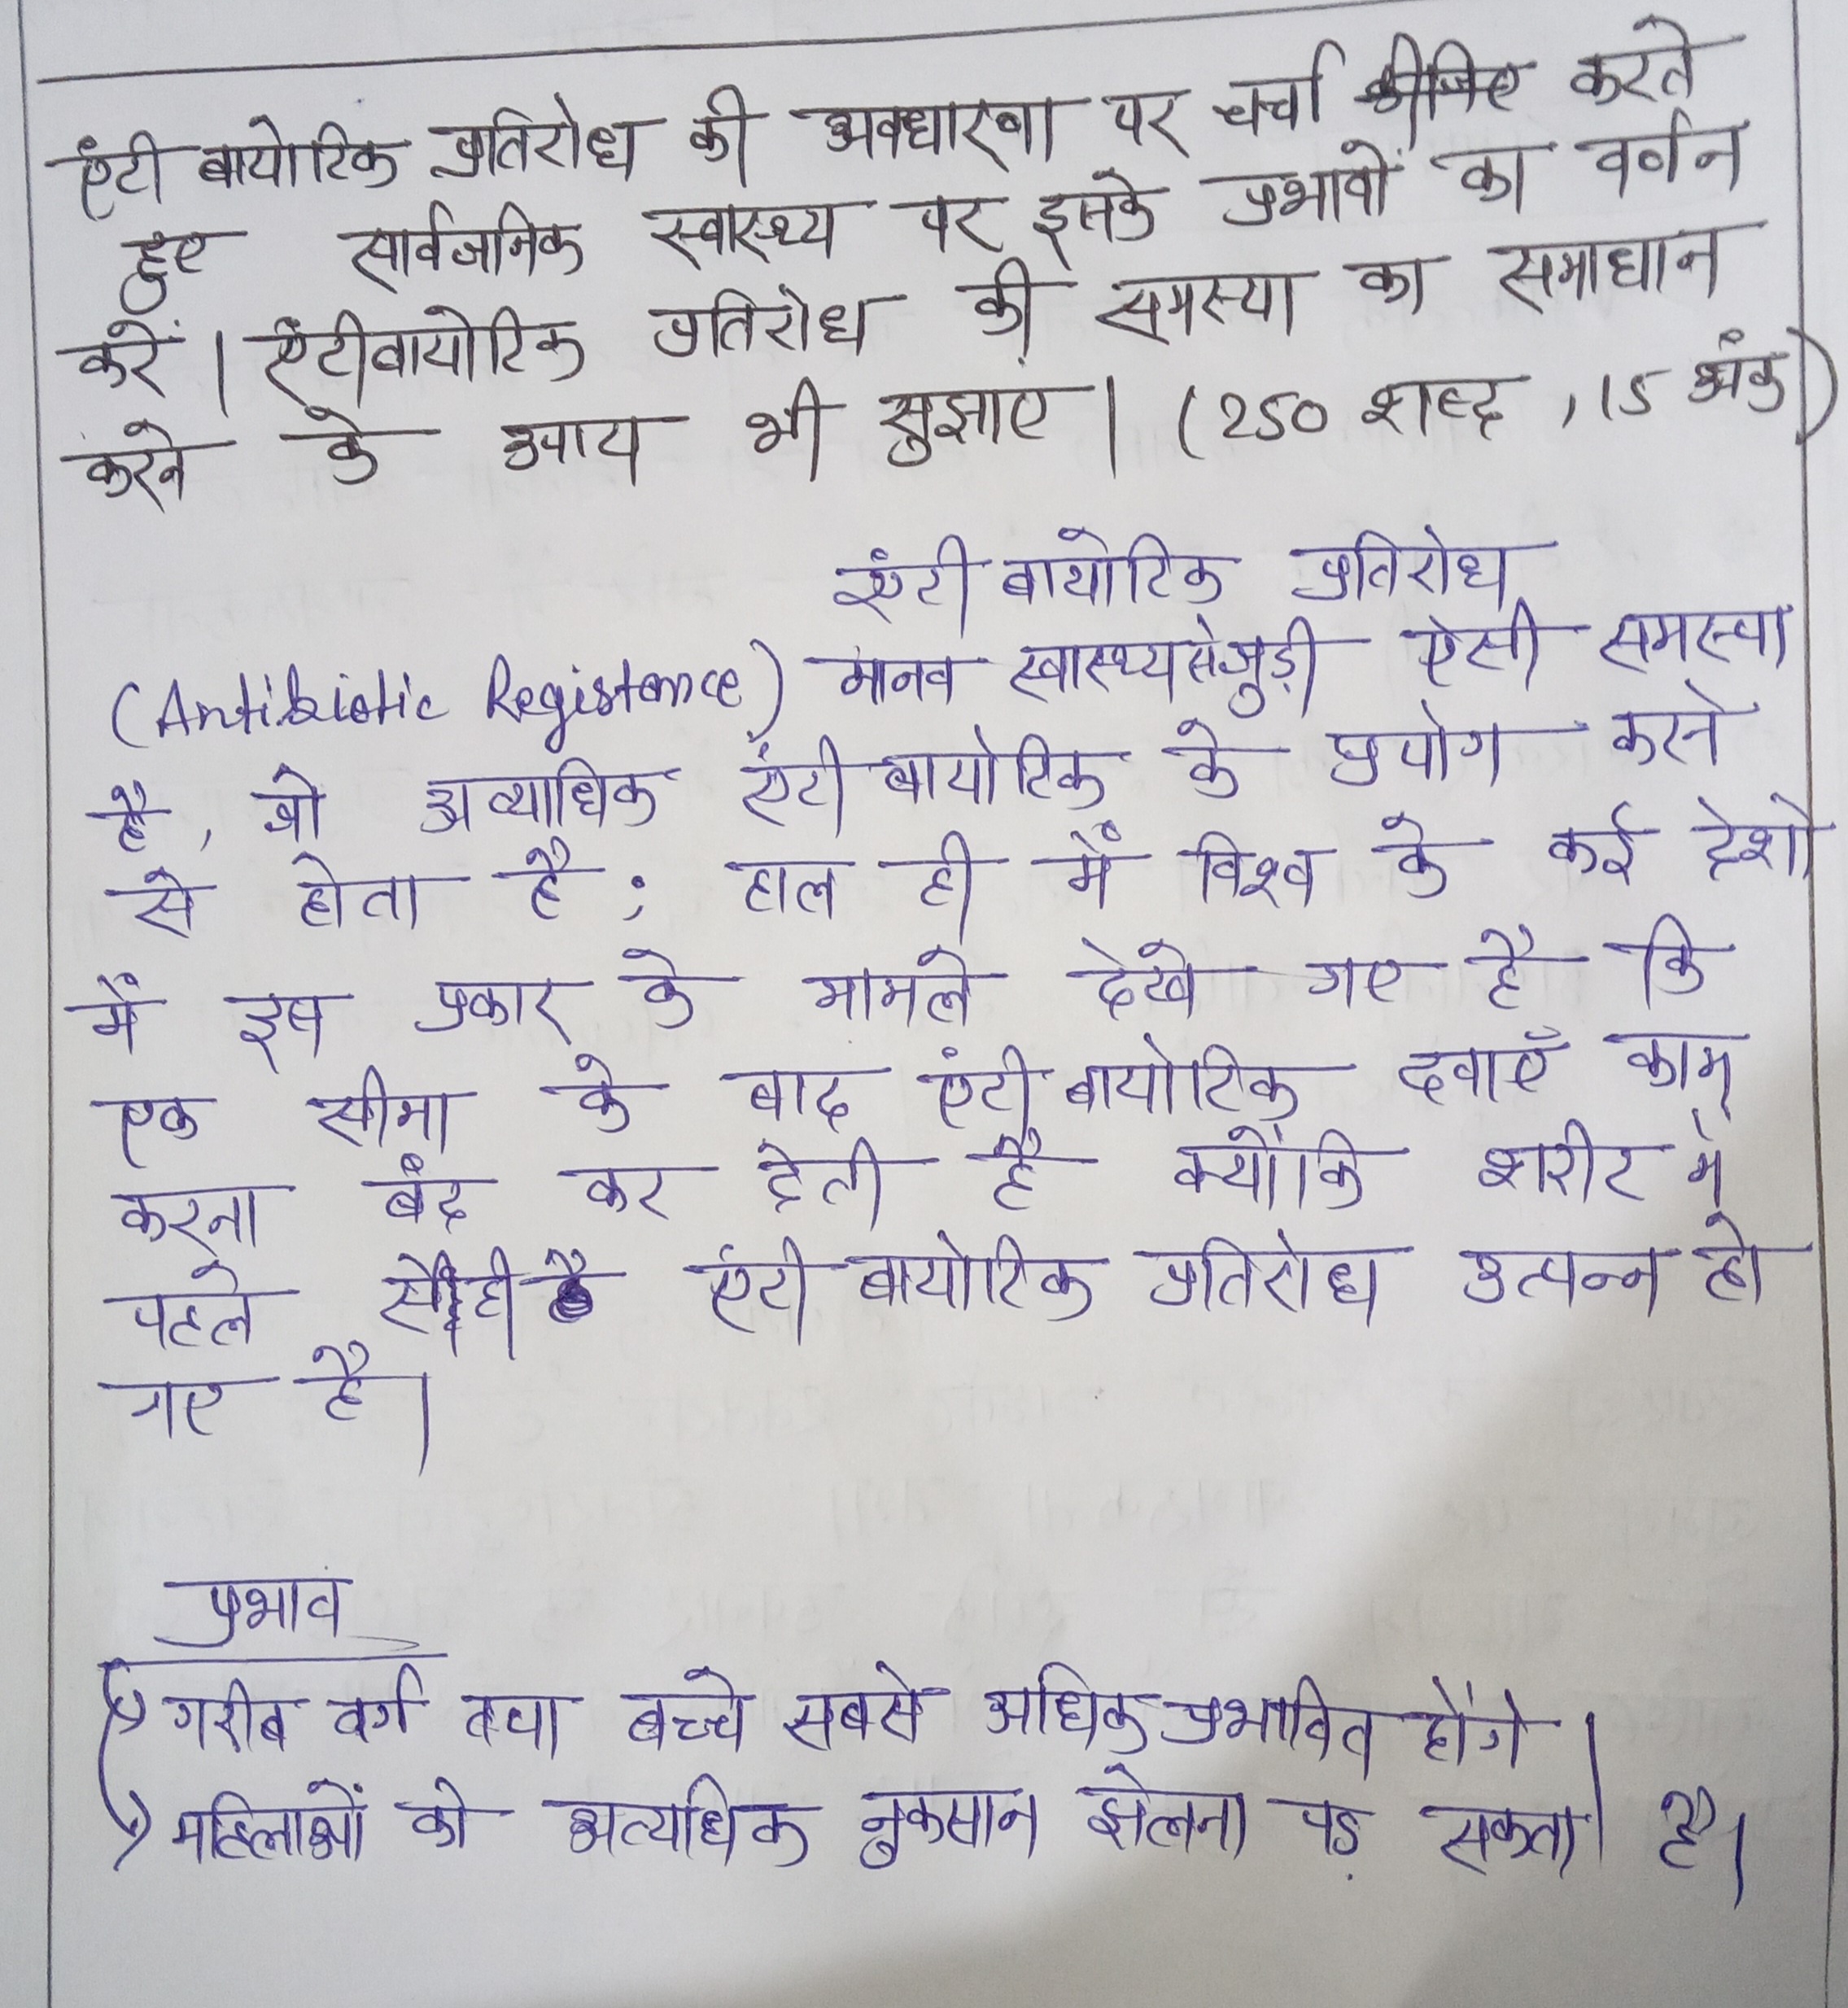 एंटी बायोटिक प्रतिरोध की अवधारणा पर चर्चा कीजिए करते
हुए सार्वजनिक स्वास्थ्य पर इसके प्रभावों का वर्णन
करें। एंटीबायोटिक प्रतिरोध की समस्या का समाधान
करने के उपाय भी सुझाए। (250 शब्द, 15 अंक)
एंटी बायोटिक प्रतिरोध
(Antibiotic Registance) मानव स्वास्थ्य से जुड़ी ऐसी समस्या
है, जो अत्याधिक एंटी बायोटिक के प्रयोग करने
से होता है; हाल ही में विश्व के कई देशो
में इस प्रकार के मामले देखे गए है कि
एक सीमा के बाद एंटी बायोटिक दवाएँ काम
करना बंद कर देती है क्योंकि शरीर में
पहले से ही एंटी बायोटिक प्रतिरोध उत्पन्न हो
गए है।
प्रभाव
गरीब वर्ग तथा बच्चे सबसे अधिक प्रभावित होंगे।
महिलाओं को अत्यधिक नुकसान झेलना पड़ सकता है।